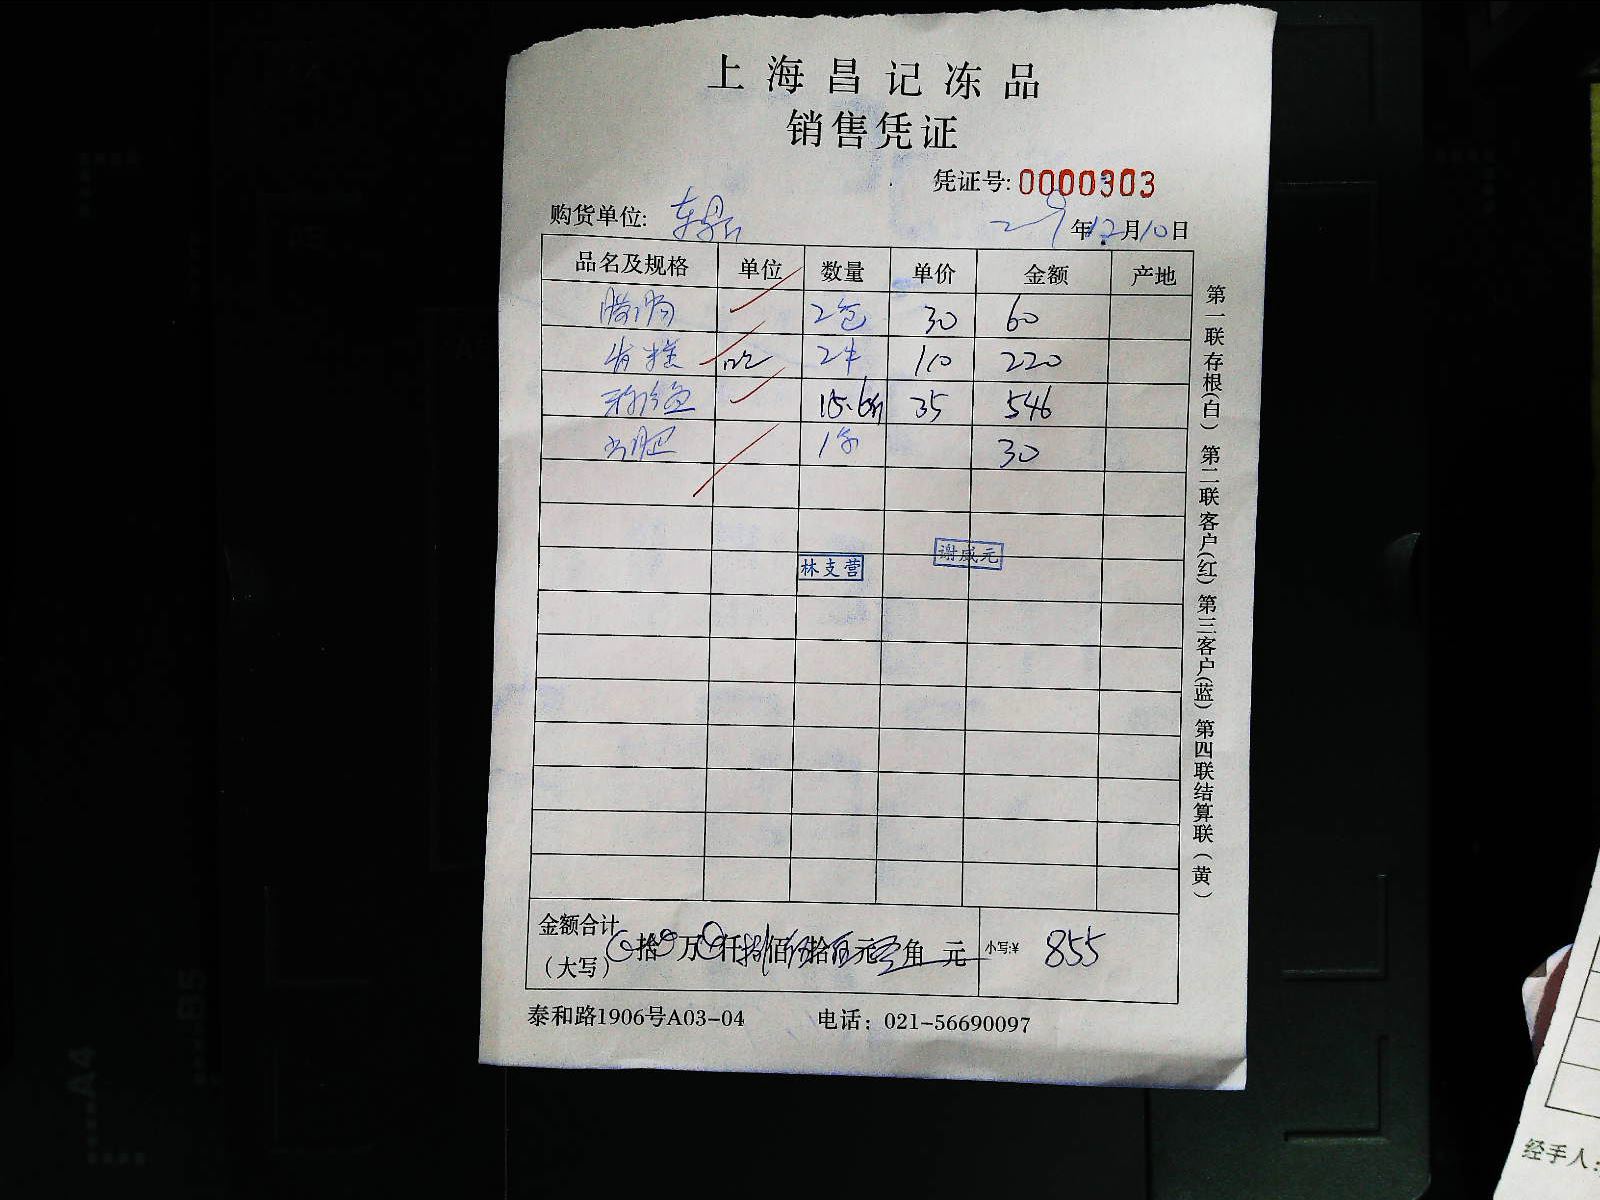 上海昌记冻品
销售凭证
凭证号: 0000303
购货单位: 东鼎 年12月10日
品名及规格 单位 数量 单价 金额 产地
腊肠 2包 30 60
2 110 220
15.6斤 35 546
1 30
林支营 谢威元
金额合计
(大写) 拾 万 仟捌佰伍拾伍元 角 元 小写:¥ 855
泰和路1906号A03-04 电话: 021-56690097
第一联存根(白) 第二联客户(红) 第三客户(蓝) 第四联结算联(黄)
A4
B5
经手人: